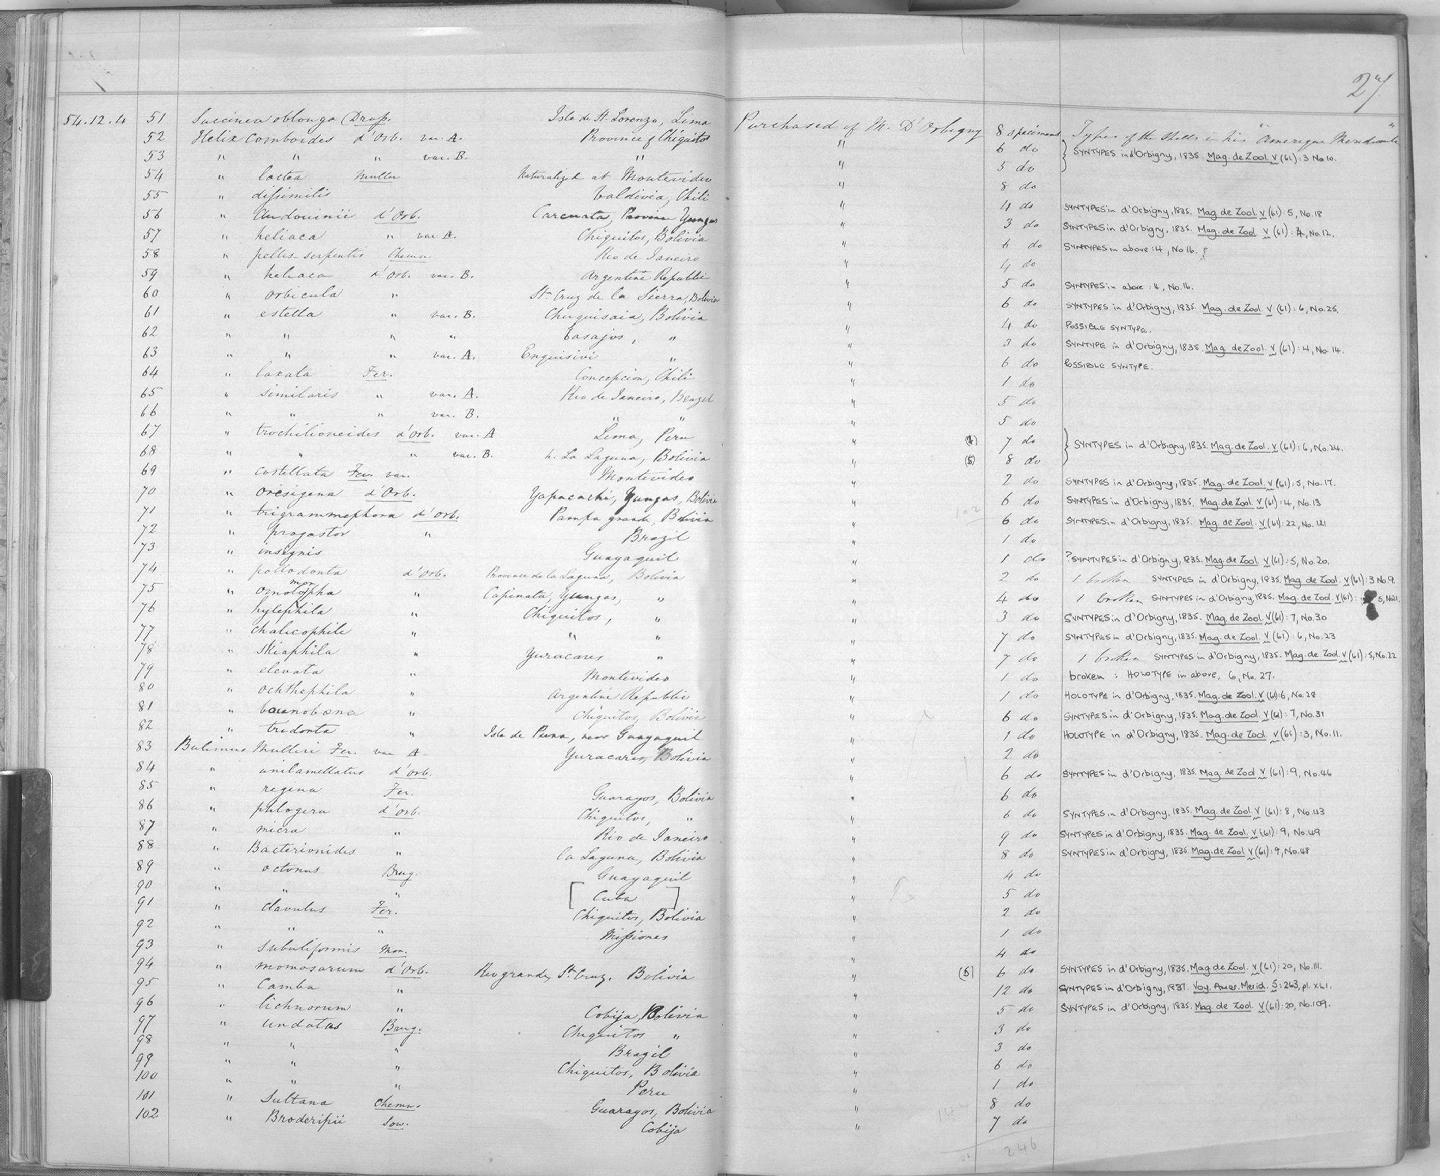 27
54.12.4 51 Succinea oblonga Drap. Isla de St Lorenzo, Lima Purchased of M. D'Orbigny 8 specimens Types of the Shells in his "Amerique Meridionale"
52 Helix Comboides d'Orb. var. A. Province of Chiquitos " 6 do SYNTYPES in d'Orbigny, 1835. Mag. de Zool. V (61): 3 No 10.
53 " " " var. B. " " 5 do
54 " lactea Muller Naturalized at Montevideo " 8 do
55 " dissimilis Valdivia, Chili " 4 do SYNTYPES in d'Orbigny, 1835. Mag. de Zool. V (61): 5, No. 18
56 " Audouinii d'Orb. Carcuata, Province Yungas " 3 do SYNTYPES in d'Orbigny, 1835. Mag. de Zool V (61): 4, No. 12.
57 " heliaca " var A. Chiquitos, Bolivia " 6 do SYNTYPES in above: 4, No 16.
58 " pellis-serpentis Chemn Rio de Janeiro " 4 do
59 " heliaca d'Orb var. B. Argentine Republic " 5 do SYNTYPES in above: 4, No. 16.
60 " orbicula " St. Cruz de la Sierra, Bolivia " 6 do SYNTYPES in d'Orbigny, 1835. Mag. de Zool V (61): 6, No. 25.
61 " estella " var. B. Chuquisaia, Bolivia " 4 do POSSIBLE SYNTYPE.
62 " " " " Casajos, " " 3 do SYNTYPE in d'Orbigny, 1835. Mag. de Zool. V (61): 4, No 14.
63 " " " var. A. Enquisivi " " 6 do POSSIBLE SYNTYPE.
64 " laxata Fer. Concepcion, Chili " 1 do
65 " similaris " var. A. Rio de Janeiro, Brazil " 5 do
66 " " " var. B. " " " 5 do
67 " trochilioneides d'Orb. var. A Lima, Peru " 7 do SYNTYPES in d'Orbigny, 1835. Mag. de Zool. V (61): 6, No. 24.
68 " " " var. B. n. La Laguna, Bolivia " (5) 8 do
69 " costellata Fer var. Montevideo " 2 do SYNTYPES in d'Orbigny, 1835. Mag. de Zool. V (61): 5, No. 17.
70 " oresigena d'Orb. Yapacachi, Yungas, Bolivia " 6 do SYNTYPES in d'Orbigny, 1835. Mag. de Zool. V (61): 4, No. 13
71 " trigrammephora d'Orb. Pampa grande, Bolivia " 6 do SYNTYPES in d'Orbigny, 1835. Mag. de Zool V (61): 22, No. 121
72 " progastor " Brazil " 1 do
73 " insignis Guayaquil " 1 do ? SYNTYPES in d'Orbigny, 1835. Mag. de Zool. V (61): 5, No. 20.
74 " pollodonta d'Orb. Province de la Laguna, Bolivia " 2 do 1 broken SYNTYPES in d'Orbigny, 1835. Mag. de Zool V (61): 3 No 9
75 " " Capinata, Yungas, " " 4 do 1 broken SYNTYPES in d'Orbigny, 1835. Mag. de Zool. V (61): 5, No 21.
76 " hylephila " Chiquitos, " " 3 do SYNTYPES in d'Orbigny, 1835. Mag. de Zool. V (61): 7, No. 30
77 " chalicophila " " " " 7 do SYNTYPES in d'Orbigny, 1835. Mag. de Zool V (61): 6, No. 23
78 " skiaphila " Yuracares " " 7 do 1 broken SYNTYPES in d'Orbigny, 1835. Mag. de Zool. V (61): 5, No. 22
79 " elevata " Montevideo " 1 do broken: HOLOTYPE in above, 6, No. 27.
80 " ochthephila " Argentine Republic " 1 do HOLOTYPE in d'Orbigny, 1835. Mag. de Zool V (61): 6, No 28
81 " " Chiquitos, Bolivia " 6 do SYNTYPES in d'Orbigny, 1835. Mag. de Zool. V (61): 7, No. 31
82 " tridonta " Isla de Puna, near Guayaquil " 1 do HOLOTYPE in d'Orbigny, 1835. Mag. de Zool. V (61): 3, No. 11.
83 Bulimus Mulleri Fer. var A Yuracares, Bolivia " 2 do
84 " unilamellatus d'Orb. " 6 do SYNTYPES in d'Orbigny, 1835. Mag. de Zool V (61): 9, No. 46
85 " regina Fer. Guarayos, Bolivia " 6 do
86 " phlogera d'Orb. Chiquitos, " " 6 do SYNTYPES in d'Orbigny, 1835. Mag. de Zool. V (61): 8, No. 43
87 " micra " Rio de Janeiro " 9 do SYNTYPES in d'Orbigny, 1835. Mag. de Zool. V (61): 9, No. 49
88 " Bacterionides " La Laguna, Bolivia " 8 do SYNTYPES in d'Orbigny, 1835. Mag. de Zool. V (61): 9, No. 48
89 " octonus Brug. Guayaquil " 4 do
90 " " " [Cuba] " 5 do
91 " clavulus Fer. Chiquitos, Bolivia " 2 do
92 " " " Missiones " 1 do
93 " subuliformis Mor. " 4 do
94 " momosarum d'Orb. Rio grande, St. Cruz. Bolivia " (5) 6 do SYNTYPES in d'Orbigny, 1835. Mag de Zool. V (61): 20, No. 111.
95 " Camba " " 12 do SYNTYPES in d'Orbigny, 1837. Voy. Amer. Merid. 5: 263, pl. x61.
96 " lichnorum " Cobija, Bolivia " 5 do SYNTYPES in d'Orbigny, 1835. Mag de Zool. V (61): 20, No. 109.
97 " undatus Brug. Chiquitos " " 3 do
98 " " " Brazil " 3 do
99 " " " Chiquitos, Bolivia " 6 do
100 " " " Peru " 1 do
101 " Sultana Chemn. Guarayos, Bolivia " 8 do
102 " Broderipii Sow. Cobija " 7 do
246